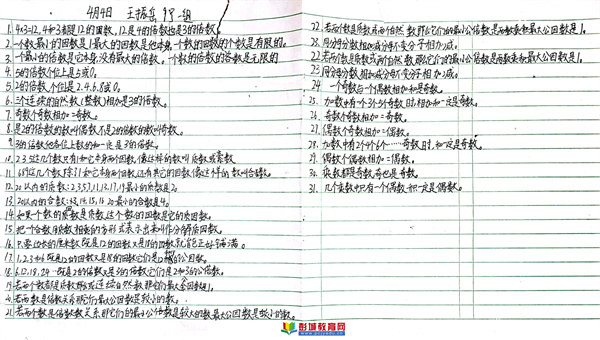 4月4日 王振岳 99 一组
1. 4×3=12, 4和3都是12的因数, 12是4的倍数也是3的倍数。
2. 一个数最小的因数是1最大的因数是他本身, 一个数的因数的个数是有限的。
3. 一个数最小的倍数是它本身, 没有最大的倍数。一个数的倍数的个数是无限的
4. 5的倍数个位上是5或0。
5. 2的倍数个位是2.4.6.8或0。
6. 三个连续的自然数(整数)相加是3的倍数。
7. 奇数个奇数相加=奇数。
8. 是2的倍数的数叫偶数不是2的倍数的数叫奇数。
9. 3的倍数他各位上数的和一定是3的倍数。
10. 2 3 5这几个数只有1和它本身两个因数, 像这样的数叫质数或素数
11. 6 8 9这几个数, 除了1和它本身两个因数, 还有其它的因数像这样的数叫合数。
12. 20以内的质数: 2,3,5,7,11,13,17,19最小的质数是2。
13. 20以内的合数: 最小的合数是4。
14. 如果一个数的因数是质数, 这个数的因数是它的质因数。
15. 把一个合数用质数相乘的方式表示出来叫作分解质因数。
16. 只要边长的厘米数既是12的因数又是18的因数就能正好铺满。
17. 1,2,3和6既是12的因数又是18的因数它们是12和18的公因数。
18. 6.12.18.24…既是2的倍数又是3的倍数它们是2和3的公倍数。
19. 若两个数都是质数或连续自然数那它们最大公因数是1。
20. 若两数是倍数关系那它们最大公因数是较小的数。
21. 若两个数是倍数关系那它们的最小公倍数是较大的数最大公因数是较小的数。
22. 若两个数是质数或两个自然数, 那它们的最小公倍数是两数乘积最大公因数是1。
28. 同分母分数相加减分母不变分子相加减。
22. 若两个数是质数或两个自然数, 那它们的最小公倍数是两数乘积最大公因数是1。
23. 同分母分数相加减分母不变分子相加减。
24. 一个奇数与一个偶数相加和是奇数。
25. 加数中有1个3个5个奇数时, 相加和一定是奇数。
26. 奇数个奇数相加=奇数。
27. 偶数个奇数相加=偶数。
28. 加数中有2个4个6个……奇数时, 和一定是偶数。
29. 偶数个偶数相加=偶数。
30. 乘数都是奇数, 积也是奇数。
31. 几个乘数中只有一个偶数, 积一定是偶数。
彭城教育网